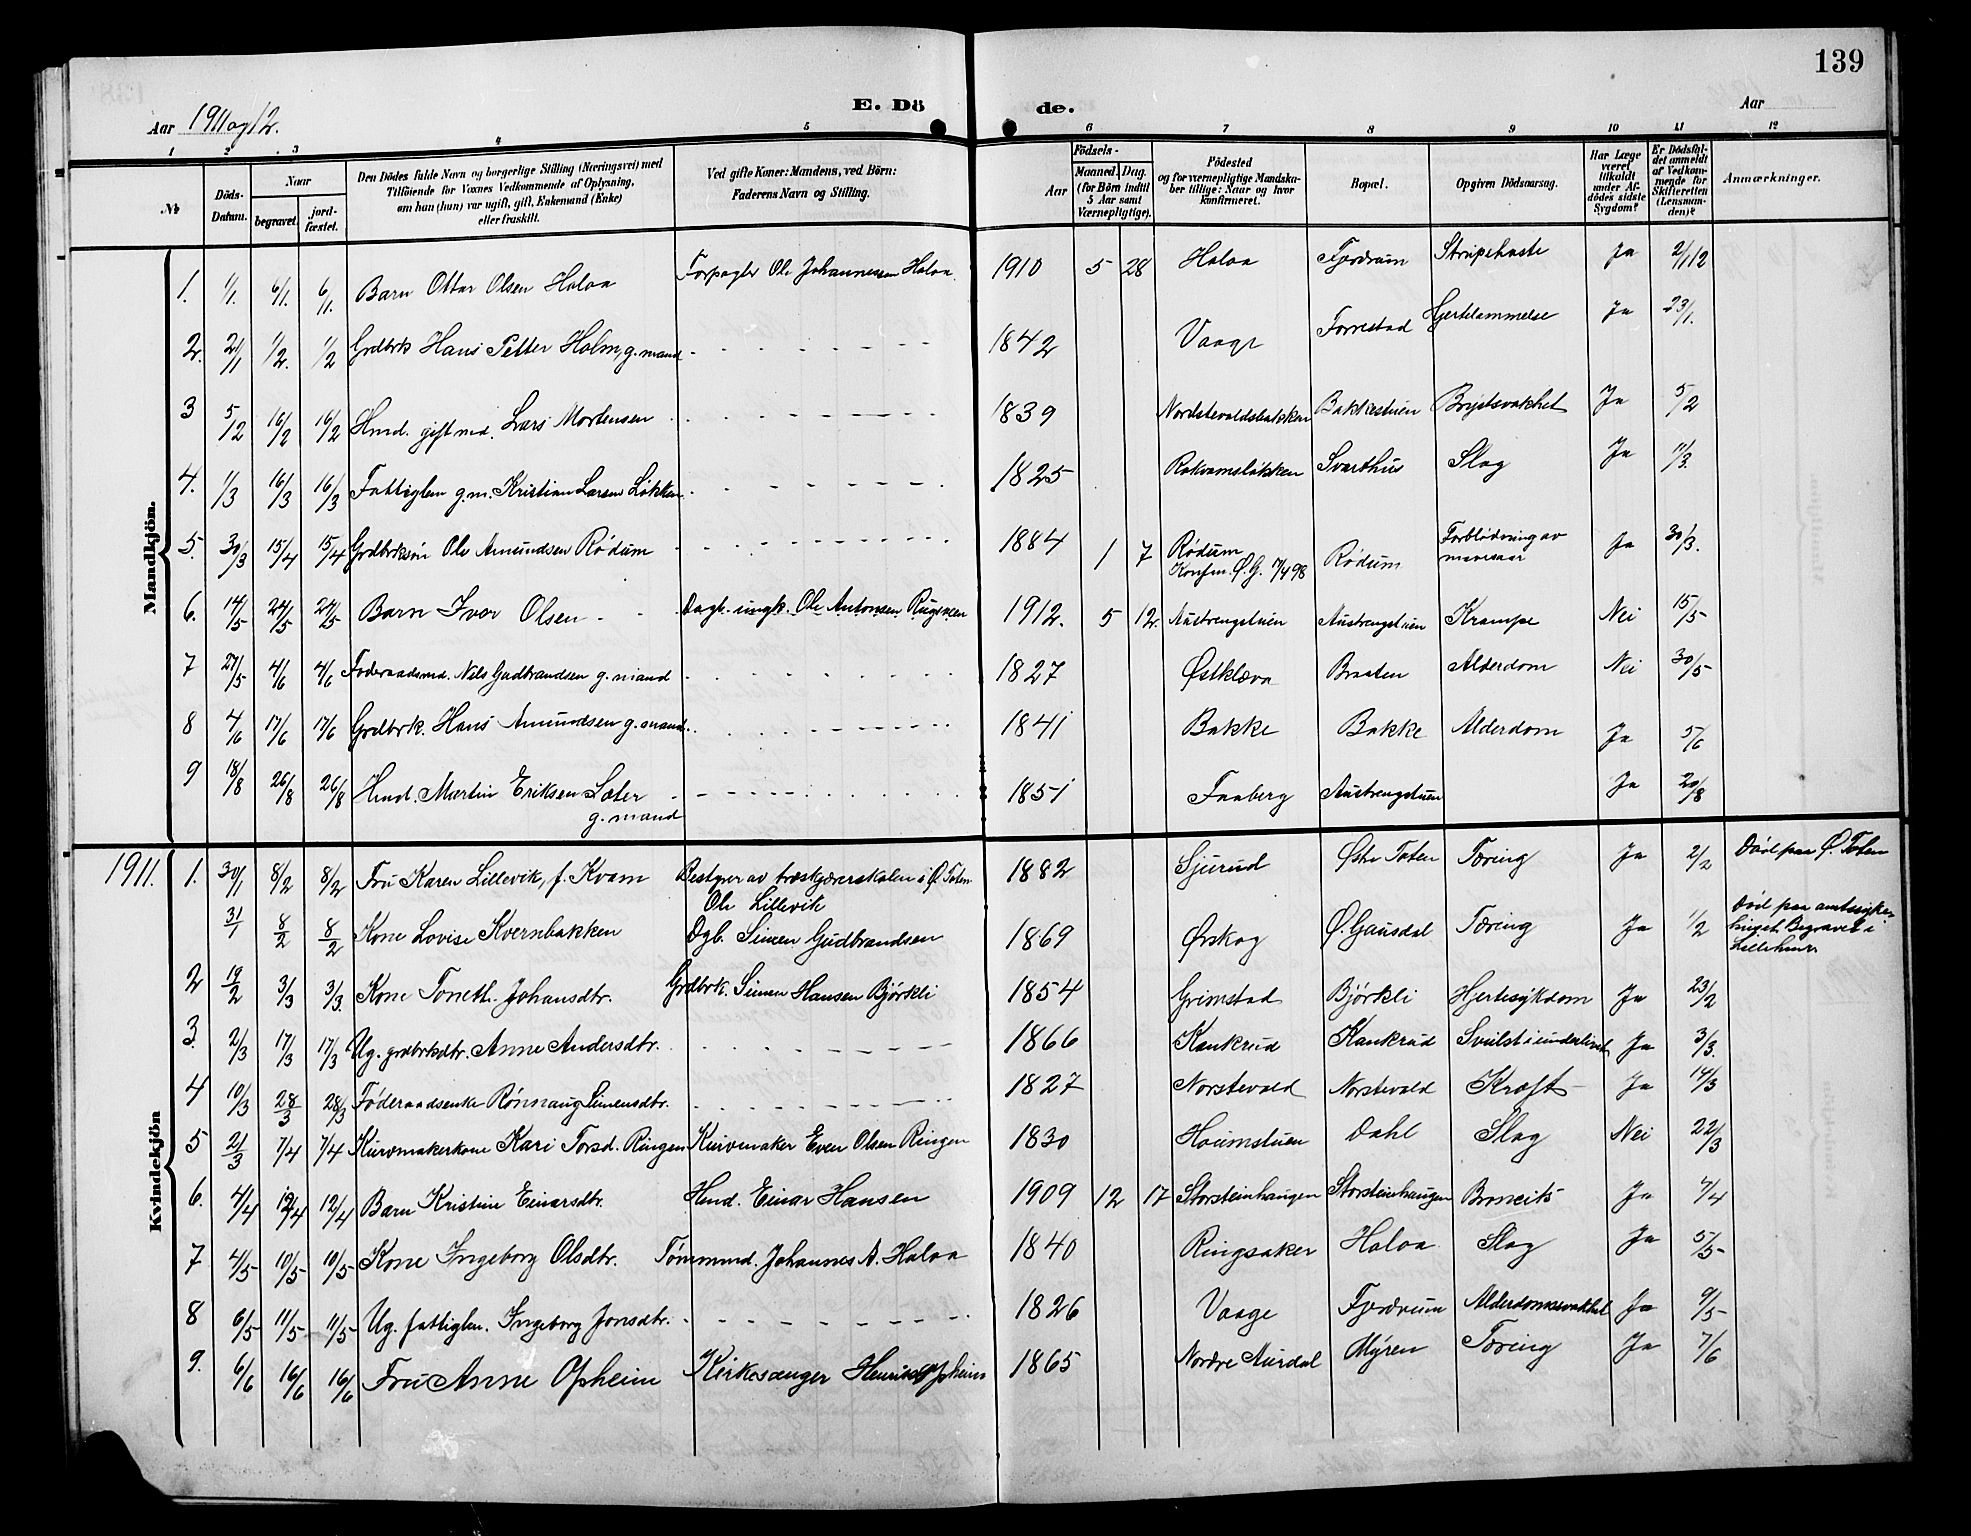 139
E. Dö de.
Aar 1911 og 12. Aar
1 2 3 4 5 6 7 8 9 10 11 12
№ Döds-Datum. Naar begravet. jordfæstet. Den Dödes fulde Navn og borgerlige Stilling (Næringsvei) med Tilföiende for Voxnes Vedkommende af Oplysning, om han (hun) var ugift, gift, Enkemand (Enke) eller fraskilt. Ved gifte Koner: Mandens, ved Börn: Faderens Navn og Stilling. Födsels- Aar Maaned. Dag. (for Börn indtil 5 Aar samt Værnepligtige). Födested og for værnepligtige Mandskaber tillige: Naar og hvor konfirmeret. Bopæl. Opgiven Dödsaarsag. Har Læge været tilkaldt under Afdödes sidste Sygdom? Er Dödsfaldet anmeldt af Vedkommende for Skifteretten (Lensmanden)? Anmærkninger.
Mandkjön.
1. 1/1. 6/1. 6/1. Barn Ottar Olsen Holoa Forpagter Ole Johannessen Holoa 1910 5 28 Holoa Fjordrum Strupehoste Ja 2/1 12
2. 21/1 1/2. 1/2 Grdbrk Hans Petter Holm, g. mand 1842 Vaage Forrestad Hjertelammelse Ja 23/1.
3 5/2 16/2 16/2 Hmd. gift md. Lars Mortensen 1839 Nordstevoldsbakken Bakkestuen Brystsvakhet Ja 5/2
4. 1/3 16/3 16/3 Fattiglem g.m. Kristian Larsen Løkken 1825 Rokvamsløkken Svarthus Slag Ja 11/3.
5. 30/3 15/4 15/4 Grdbrksøn Ole Amundsen Rødum 1884 1 7 Rødum Konfm. Ø.G. 7/4 98 Rødum Forblødning av mavesaar Ja 30/3.
6. 14/5 24/5 24/5 Barn Ivar Olsen Dagl. ungk. Ole Antonsen Rugsveen 1912. 5 12. Austrengstuen Austrengstuen Krampe Nei 15/5
7 27/5 4/6 4/6 Føderaadsmd. Nils Gudbrandsen g. mand 1827 Østklæva Braaten Alderdom Nei 30/5
8 4/6 17/6 17/6 Grdbrk. Hans Amundsen g. mand 1841 Bakke Bakke Alderdom Ja 5/6
9 18/8 26/8 26/8 Hmd. Martin Eriksen Sæter g. mand 1851 Faaberg Austrengstuen Ja 20/8
Kvindekjön
1911. 1. 30/1 8/2 8/2 Fru Karen Lillevik, f. Kvam Bestyrer av træskjærerskolen i Ø. Toten Ole Lillevik 1882 Sjurud Østre Toten Tæring Ja 2/2 Død paa Ø. Toten
31/1 8/2 8/2 Kone Lovise Kvernbakken Dgb. Simen Gudbrandsen 1869 Ørskog Ø. Gausdal Tæring Ja 1/2 Død paa amtssykehuset. Begravet i Lillehmr
2 19/2 3/3 3/3. Kone Toneth. Johansdtr. Grdbrk. Simen Hansen Bjørkli 1854 Grimstad Bjørkli Hjertesykdom Ja 23/2
3. 2/3 17/3 17/3 Ug. grdbrksdtr. Anne Andersdtr. 1866 Kankrud Kankrud Svulst i underlivet Ja 3/3.
4 10/3 28/3 28/3 Føderaadsenke Rønnaug Simensdtr. 1827 Norstevold Norstevold Kræft Ja 14/3
5 21/3 7/4 7/4 Kurvmakerkone Kari Torsd. Ringen Kurvmaker Even Olsen Ringen 1830 Houmstuen Dahl Slag Nei 22/3
6. 4/4 12/4 12/4 Barn Kristine Einarsdtr. Hmd. Einar Hansen 1909 12 17 Storsteinhaugen Storsteinhaugen Broncit Ja 7/4
7 4/5 10/5 10/5 Kone Ingeborg Olsdtr. Tømmmd. Johannes A. Holoa 1840 Ringsaker Holoa Slag Ja 5/5
8 6/5 11/5 11/5 Ug. fattiglm. Ingeborg Jonsdtr. 1826 Vaage Fjordrum Alderdomssvakhet Ja 9/5
9. 6/6 16/6 16/6 Fru Anne Opheim Kirkesanger Henrik Opheim 1865 Nordre Aurdal Myren Tæring Ja 7/6